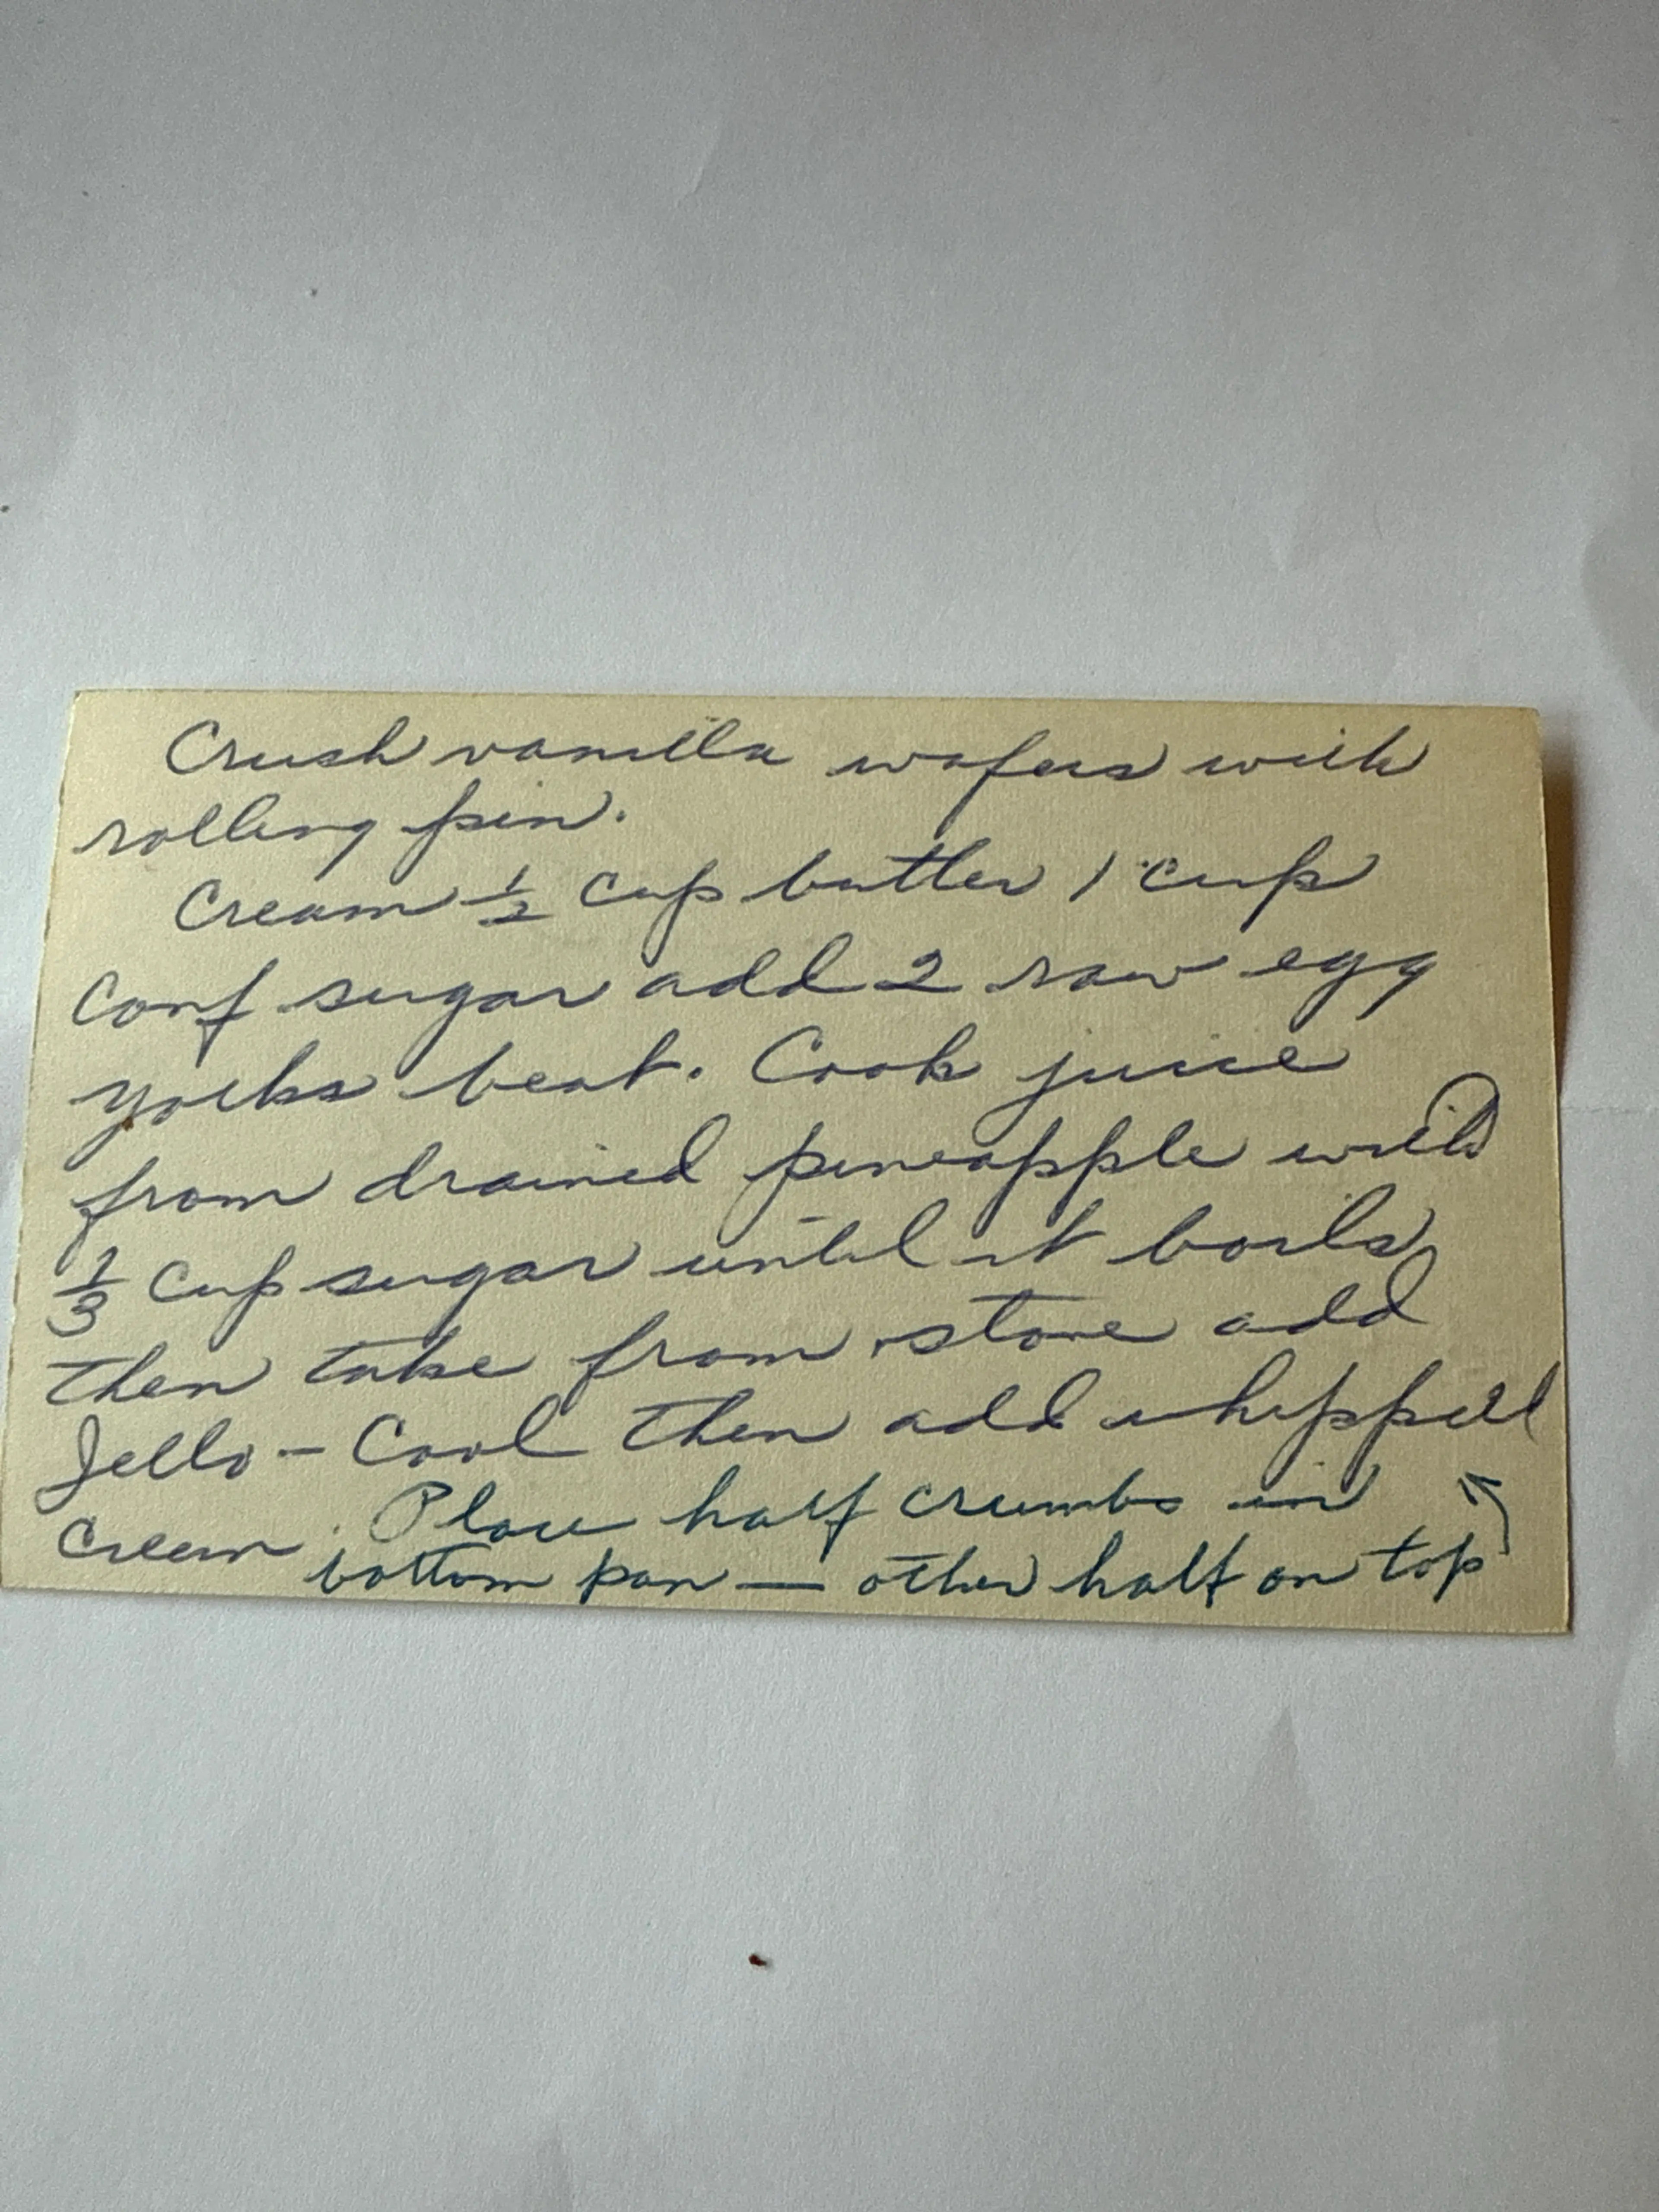 Crush vanilla wafers with
rolling pin.
Cream 1/2 cup butter 1 cup
Conf sugar add 2 raw egg
yolks beat. Cook juice
from drained pineapple with
1/3 cup sugar until it boils,
then take from stove add
Jello - Cool then add whipped
cream. Place half crumbs in
bottom pan — other half on top